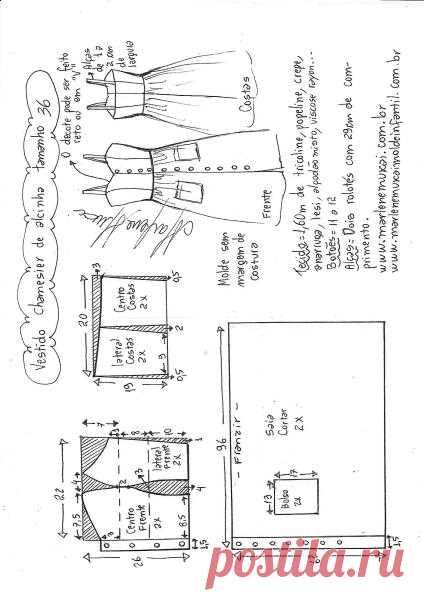 Vestido chamesier de alcinha tamanho 36
O decote pode ser feito
reto ou em "V"
Alças
de 1 a
2 cm
de
largura
Costas
Frente
Molde sem
margem de
costura
Tecido = 1,60m de tricoline, popeline, crepe,
anarruga, lesi, algodão misto, viscose rayon...
Botões = 11 a 12
Alças = Dois rolotês com 29cm de com-
primento.
www.marlenemukai.com.br
www.marlenemukaimoldeinfantil.com.br
20
3
19
lateral
Costas
2x
Centro
Costas
2x
9
2
0,5
0,5
22
7,5
4
7
3
8
10
1
3
2
3
26
Centro
Frente
2x
lateral
Frente
2x
8,5
4
1,5
96
- Franzir -
Saia
Cortar
2X
13
17
Bolso
2x
1,5
postila.ru